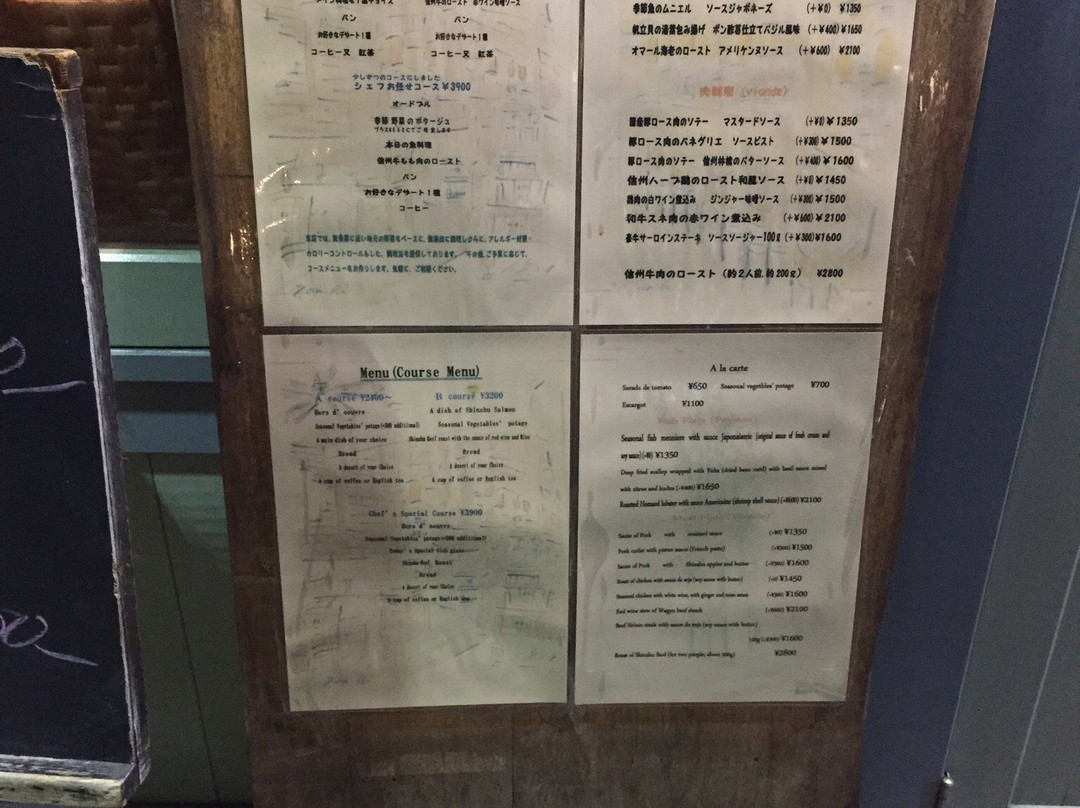 パン
パン
お好きなデザート1種
お好きなデザート1種
コーヒー又 紅茶
コーヒー又 紅茶
少しずつのコースにしました
シェフお任せコース¥3900
オードブル
季節 野菜のポタージュ
本日の魚料理
信州牛もも肉のロースト
パン
お好きなデザート1種
コーヒー
季節魚のムニエル ソースジャポネーズ (+0) ¥1350
帆立貝の湯葉包み揚げ ポン酢葛仕立てバジル風味 (+¥400)¥1650
オマール海老のロースト アメリケンヌソース (+¥600) ¥2100
肉料理 (viande)
国産豚ロース肉のソテー マスタードソース (+¥0)¥1350
豚ロース肉のパネグリエ ソースピスト (+¥300)¥1500
豚ロース肉のソテー 信州林檎のバターソース (+¥400)¥1600
信州ハーブ鶏のロースト和風ソース (+¥0)¥1450
鶏肉の白ワイン煮込み ジンジャー味噌ソース (+¥300)¥1500
和牛スネ肉の赤ワイン煮込み (+¥600)¥2100
牛サーロインステーキ ソースソージャー100g (+¥300)¥1600
信州牛肉のロースト (約2人前、約200g) ¥2800
Menu(Course Menu)
A course ¥2400~
B course ¥3200
Hors d' oeuvre
A dish of Shinshu Salmon
Seasonal Vegetables' potage(+500 additional)
Seasonal Vegetables' potage
A main dish of your choice
Shinshu Beef roast with the sauce of red wine and Miso
Bread
Bread
A desert of your Choice
A desert of your Choice
A cup of coffee or English tea
A cup of coffee or English tea
Chef' s Special Course ¥3900
Hors d' oeuvre
Seasonal Vegetables' potage(+500 additional)
Today' s Special fish plate
Shinshu Beef Roast
Bread
A desert of your Choice
A cup of coffee or English tea
A la carte
Sarada de tomato ¥650 Seasonal vegetbles' potage ¥700
Escargot ¥1100
Seasonal fish meuniere with sauce Japonaiserie (original sauce of fresh cream and
soy sauce)(+¥0) ¥1350
Deep fried scallop wrapped with Yuba (dried bean curd) with basil sauce mixed
with citrus and kudzu (+¥400) ¥1650
Roasted Homard lobster with sauce Americaine (shrimp shell sauce) (+¥600) ¥2100
Saute of Pork with mustard sauce (+¥0) ¥1350
Pork cutlet with pistou sauce (French pesto) (+¥300) ¥1500
Saute of Pork with Shinshu apples and butter (+¥300) ¥1600
Roast of chicken with sauce de soja (soy sauce with butter) (+0) ¥1450
Steamed chicken with white wine, with ginger and miso sauce (+¥300) ¥1600
Red wine stew of Wagyu beef shank (+¥600) ¥2100
Beef Sirloin steak with sauce de soja (soy sauce with butter)
100g (+¥300) ¥1600
Roast of Shinshu Beef (for two people, about 200g) ¥2800